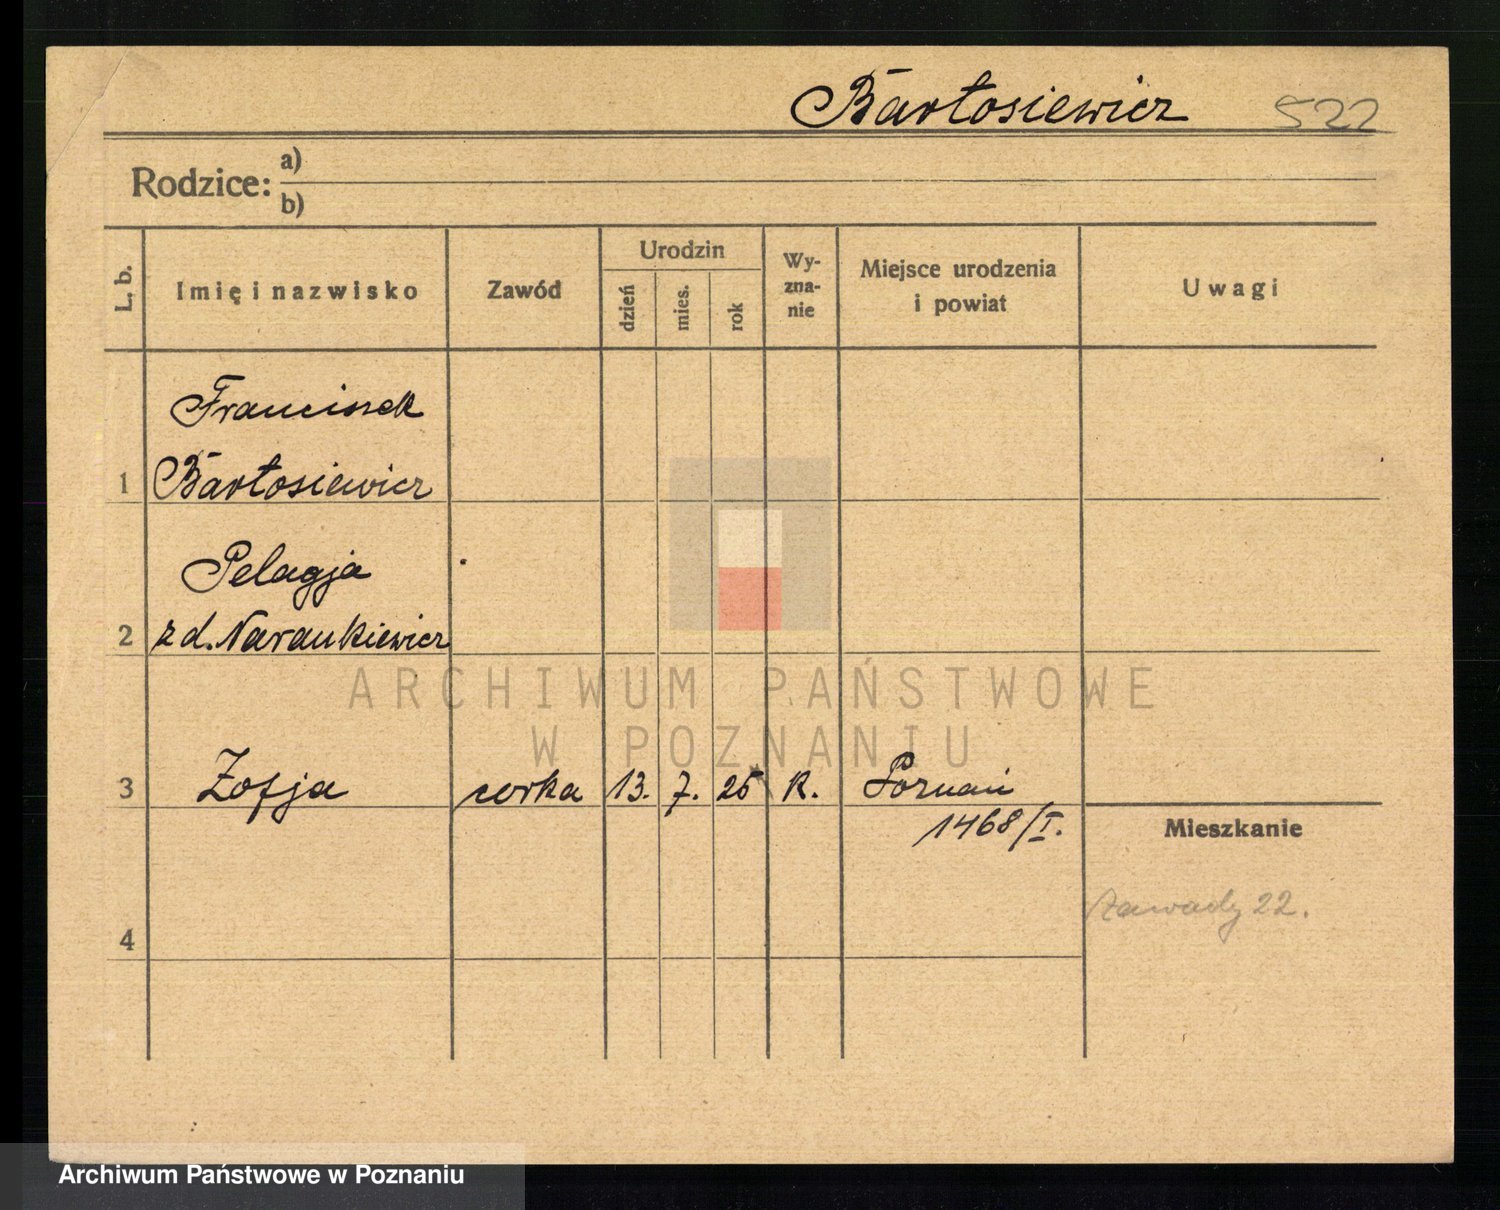 Bartosiewicz 522
Rodzice: a)
b)
L. b.
Imię i nazwisko
Zawód
Urodzin
dzień
mies.
rok
Wy-
zna-
nie
Miejsce urodzenia
i powiat
Uwagi
Franciszek
1 Bartosiewicz
Pelagja
2 z d. Narankiewicz
3 Zofja corka 13. 7. 25 R. Poznań
1468/I.
Mieszkanie
Zawady 22.
4
ARCHIWUM PAŃSTWOWE
W POZNANIU
Archiwum Państwowe w Poznaniu